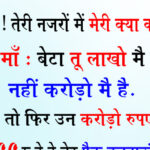 ! तेरी नजरों में मेरी क्या क
माँ : बेटा तू लाखो मै
नहीं करोड़ो मै है.
तो फिर उन करोड़ो रुपए